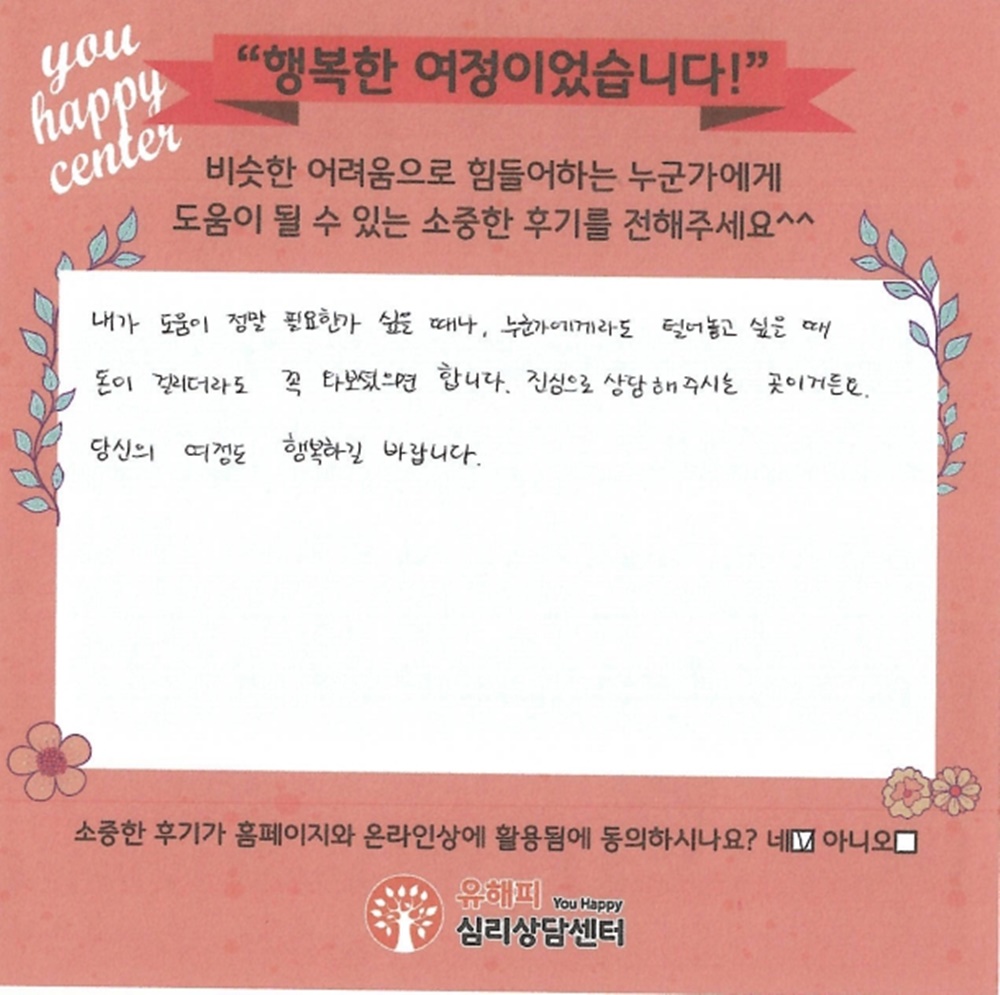 you
happy
center
“행복한 여정이었습니다!”
비슷한 어려움으로 힘들어하는 누군가에게
도움이 될 수 있는 소중한 후기를 전해주세요^^
내가 도움이 정말 필요한가 싶을 때나, 누군가에게라도 털어놓고 싶을 때
돈이 걸리더라도 꼭 와보셨으면 합니다. 진심으로 상담해주시는 곳이거든요.
당신의 여정도 행복하길 바랍니다.
소중한 후기가 홈페이지와 온라인상에 활용됨에 동의하시나요? 네☑ 아니오☐
유해피 You Happy
심리상담센터